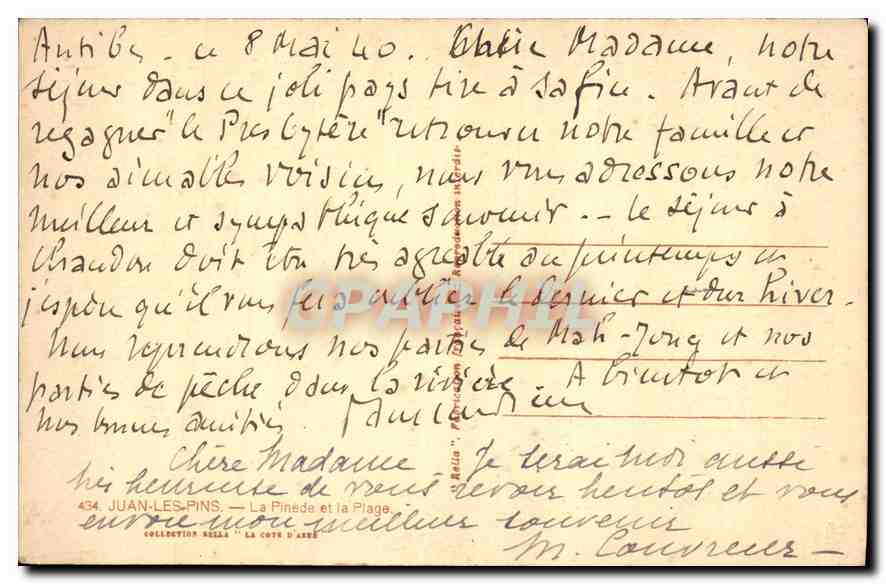 Antibes - ce 8 Mai 40. Chère Madame, notre
séjour dans ce joli pays tire à sa fin. Avant de
regagner "le Presbytère" retrouver notre famille et
nos aimables voisins, nous vous adressons notre
meilleur et sympathique souvenir. - Le séjour à
Chandon doit être très agréable au printemps et
j'espère qu'il vous fera oublier le dernier et dur hiver.
Nous reprendrons nos parties de Mah-Jong et nos
parties de pêche dans la rivière. A bientôt et
nos bonnes amitiés.
Chère Madame Je serai moi aussi
très heureuse de vous revoir bientôt et vous
envoie mon meilleur souvenir
M. Couvreur -
434. JUAN-LES-PINS. — La Pinède et la Plage.
COLLECTION RELLA "LA COTE D'AZUR
"Rella". Fabrication Française - Reproduction interdite
CPARPHIL